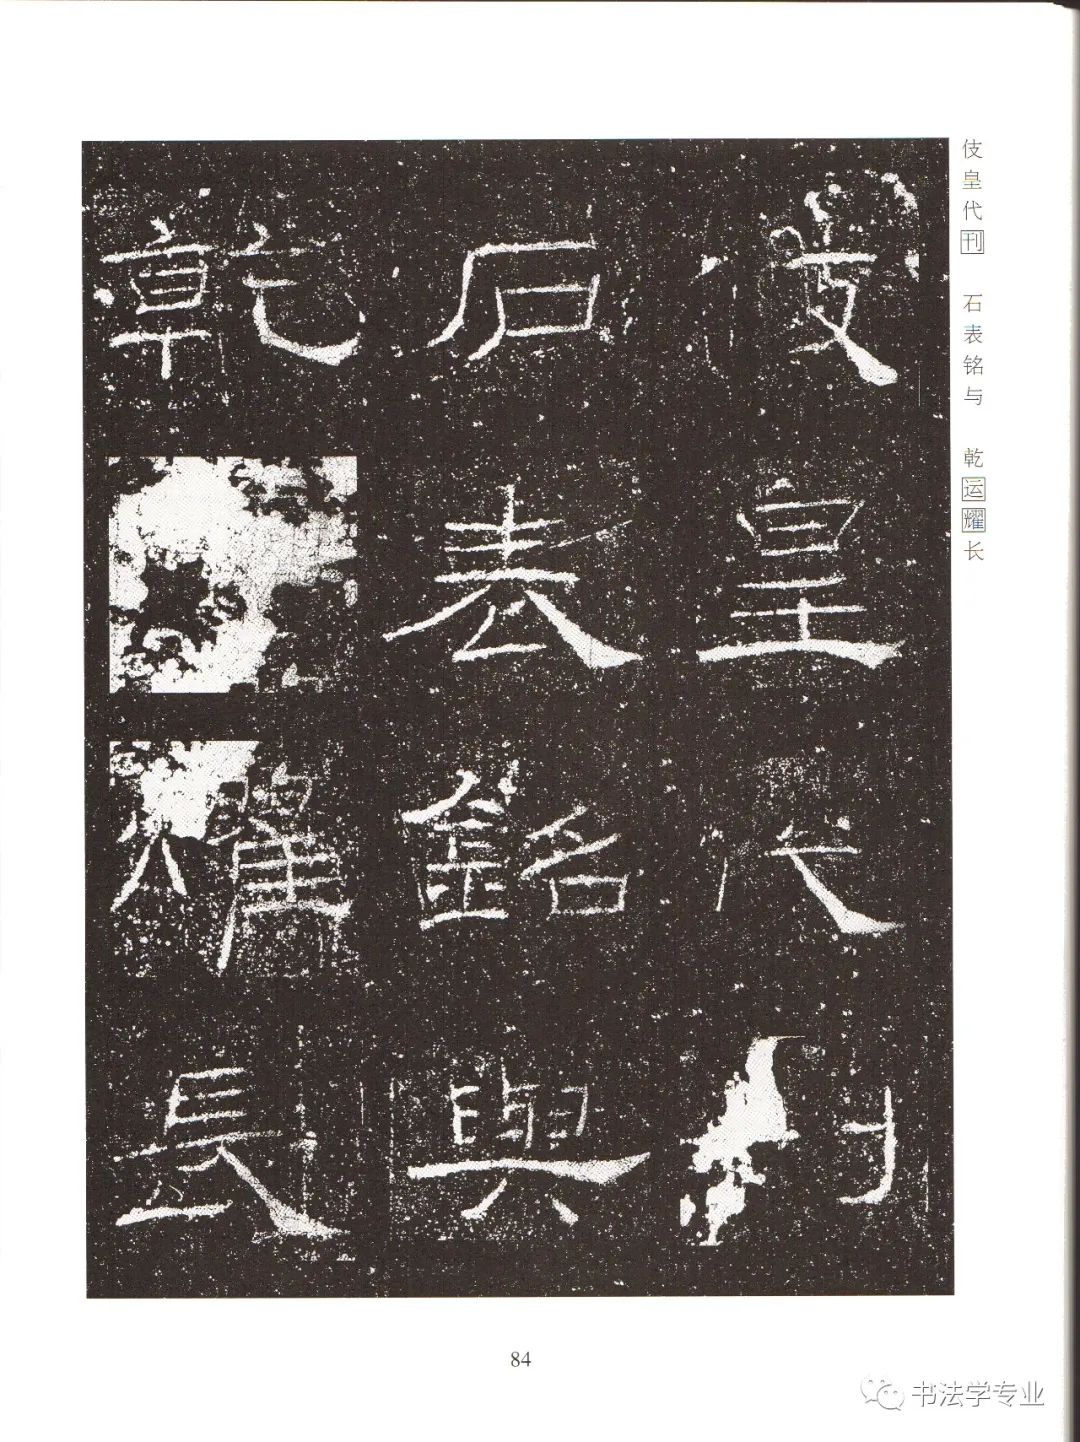 伎皇代刊
石表銘與
乾耀長
伎皇代刊 石表铭与 乾运耀长
84
书法学专业